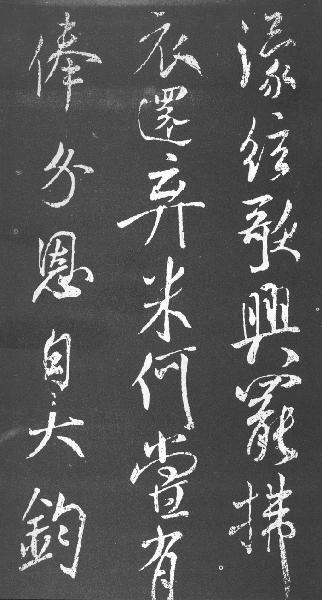 深絃歌興罷拂
衣還弃米何嘗有
俸分恩自天鈞